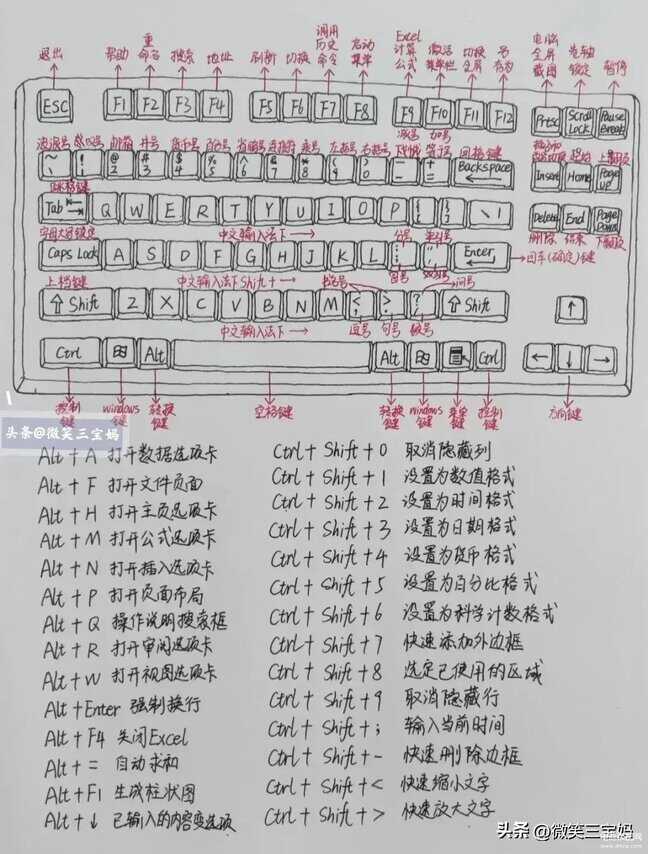 退出 帮助 重命名 搜索 地址 刷新 切换 调用历史命令 启动菜单 Excel计算公式 激活菜单栏 切换全屏 另存为 电脑全屏截图 光轴锁定 暂停
ESC F1 F2 F3 F4 F5 F6 F7 F8 F9 F10 F11 F12 Prtsc Scroll Lock Pause Break
波浪号 感叹号 井号 货币号 百分号 省略号 连接符 乘号 左括号 右括号 减号 加号 等于号 回格键 起始 上翻页
~ 、 ! 1 @ 2 # 3 $ 4 % 5 ^ 6 & 7 * 8 ( 9 ) 0 — - + = Backspace Insert Home Page UP
跳格键
Tab Q W E R T Y U I O P { [ } ] \ | Delete End Page Down
字母大写锁定 中文输入法下 分号 删除 结束 下翻页
Caps Lock A S D F G H J K L : ; " ' Enter 回车(确定)键
上档键 中文输入法下Shift+ 书名号 冒号 双引号 问号
Shift Z X C V B N M < , > . ? / Shift ↑
中文输入法下 逗号 句号
Ctrl Alt Alt Ctrl ← ↓ →
控制键 windows键 转换键 空格键 转换键 windows键 菜单键 控制键 方向键
头条@微笑三宝妈
Alt + A 打开数据选项卡
Alt + F 打开文件页面
Alt + H 打开主页选项卡
Alt + M 打开公式选项卡
Alt + N 打开插入选项卡
Alt + P 打开页面布局
Alt + Q 操作说明搜索框
Alt + R 打开审阅选项卡
Alt + W 打开视图选项卡
Alt +Enter 强制换行
Alt + F4 关闭Excel
Alt + = 自动求和
Alt + F1 生成柱状图
Alt + ↓ 已输入的内容变选项
Ctrl + Shift + 0 取消隐藏列
Ctrl + Shift + 1 设置为数值格式
Ctrl + Shift + 2 设置为时间格式
Ctrl + Shift + 3 设置为日期格式
Ctrl + Shift + 4 设置为货币格式
Ctrl + Shift + 5 设置为百分比格式
Ctrl + Shift + 6 设置为科学计数格式
Ctrl + Shift + 7 快速添加外边框
Ctrl + Shift + 8 选定已使用的区域
Ctrl + Shift + 9 取消隐藏行
Ctrl + Shift + ; 输入当前时间
Ctrl + Shift + - 快速删除边框
Ctrl + Shift + < 快速缩小文字
Ctrl + Shift + > 快速放大文字
头条 @微笑三宝妈